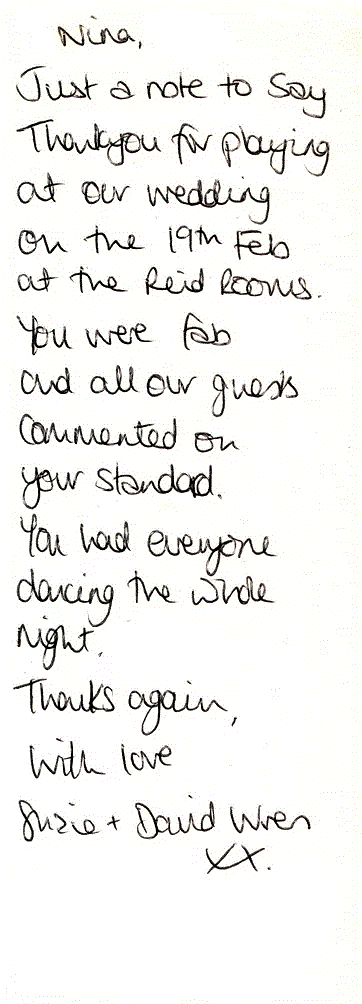 Nina,
Just a note to say
Thankyou for playing
at our wedding
on the 19th Feb
at the Reid Rooms.
You were fab
and all our guests
commented on
your standad.
You had everyone
dancing the whole
night.
Thanks again,
with love
Suzie + David Wren
xx.